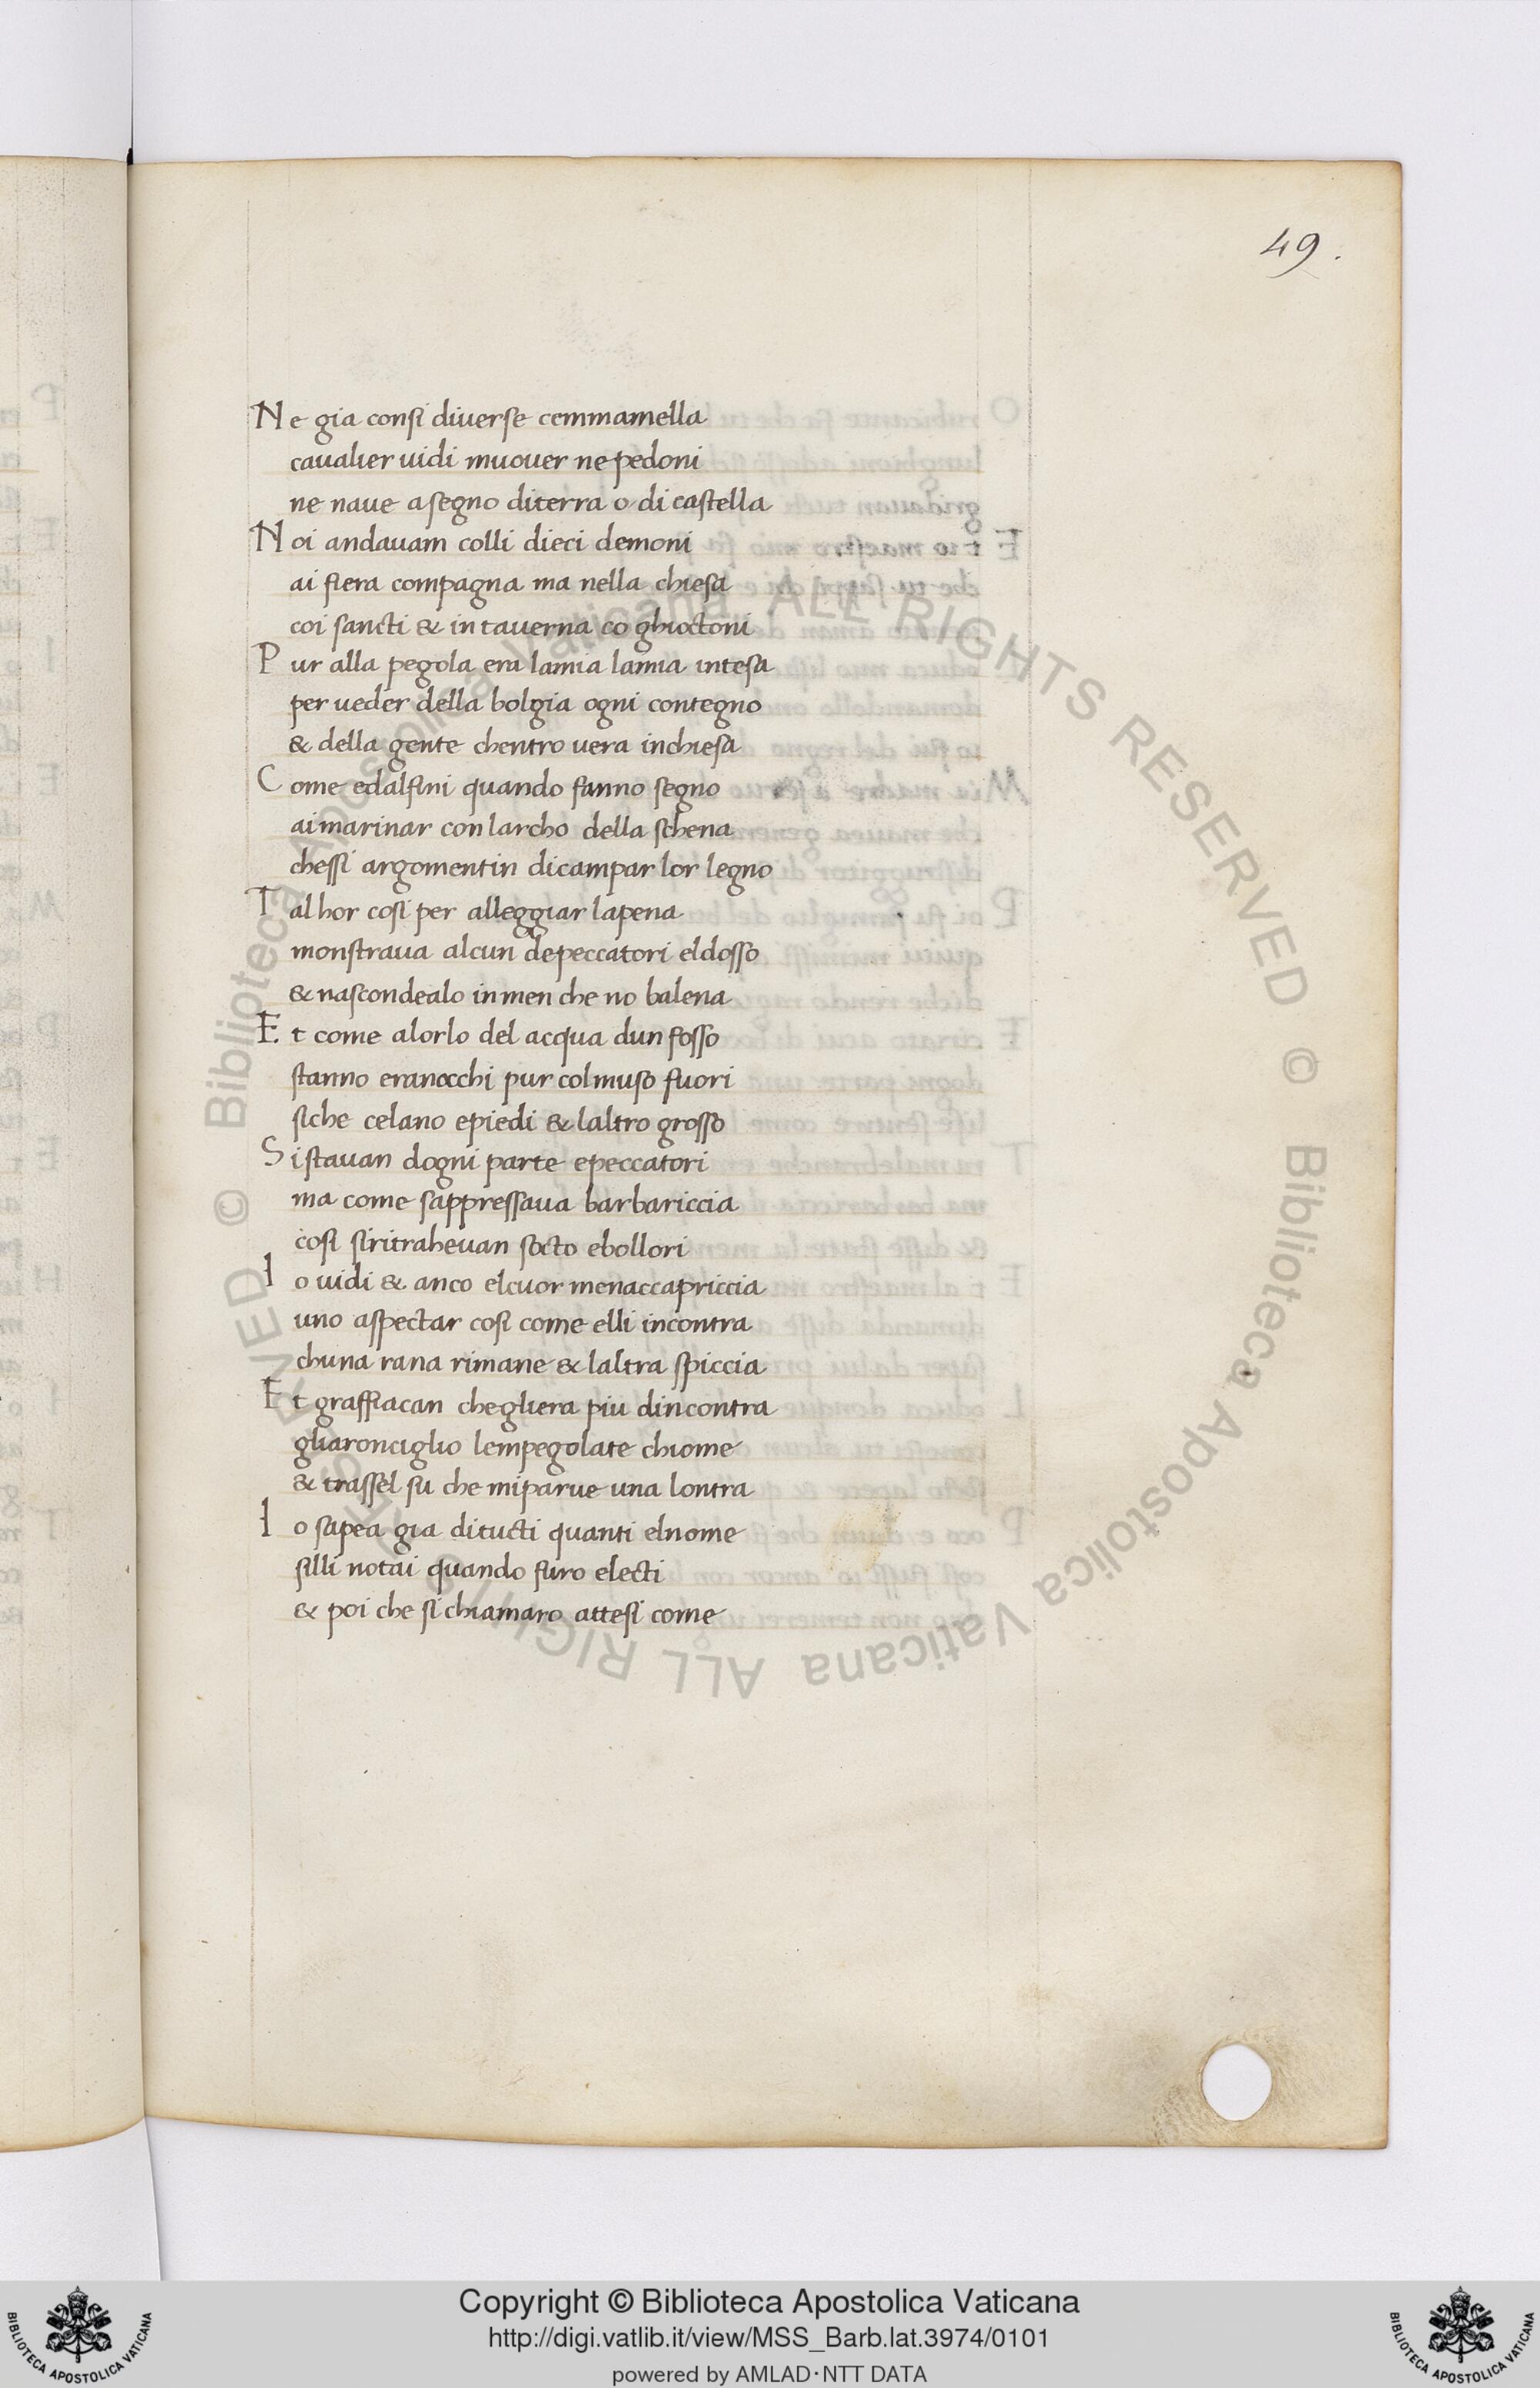 49.
Ne gia consi diverse cemmamella
cavalier vidi muover ne pedoni
ne nave a segno di terra o di castella
Noi andavam colli dieci demoni
ai fiera compagna ma nella chiesa
coi sancti & in taverna co ghioctoni
Pur alla pegola era lamia lamia intesa
per veder della bolgia ogni contegno
& della gente chentro vera inchiesa
Come edalfini quando fanno segno
ai marinar con larcho della schena
chessi argomentin di campar lor legno
Tal hor cosi per alleggiar la pena
monstrava alcun de peccatori el dosso
& nascondealo in men che no balena
Et come alorlo del acqua dun fosso
stanno eranocchi pur col muso fuori
siche celano epiedi & laltro grosso
Si stavan dogni parte epeccatori
ma come sappressava barbariccia
cosi si ritrahevan socto ebollori
Io vidi & anco el cuor menaccapriccia
uno aspectar cosi come elli incontra
chuna rana rimane & laltra spiccia
Et graffiacan che gliera piu dincontra
gliaronciglio lempegolate chiome
& trassel su che mi parve una lontra
Io sapea gia di tucti quanti el nome
silli notai quando furo electi
& poi che si chiamaro attesi come
© Biblioteca Apostolica Vaticana ALL RIGHTS RESERVED © Biblioteca Apostolica Vaticana ALL RIGHTS RESERVED
BIBLIOTECA APOSTOLICA VATICANA
Copyright © Biblioteca Apostolica Vaticana
http://digi.vatlib.it/view/MSS_Barb.lat.3974/0101
powered by AMLAD·NTT DATA
BIBLIOTECA APOSTOLICA VATICANA